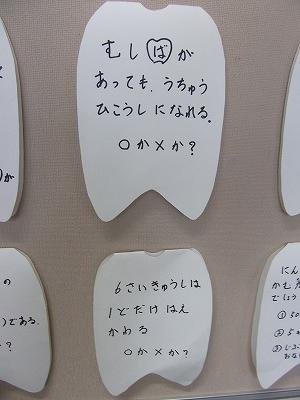 むしばが
あっても、うちゅう
ひこうしになれる。
○か×か?
の
)である。
?
6さいきゅうしは
1どだけはえ
かわる
○か×か?
にん
かむ
でしょう
① 50
② 5
③